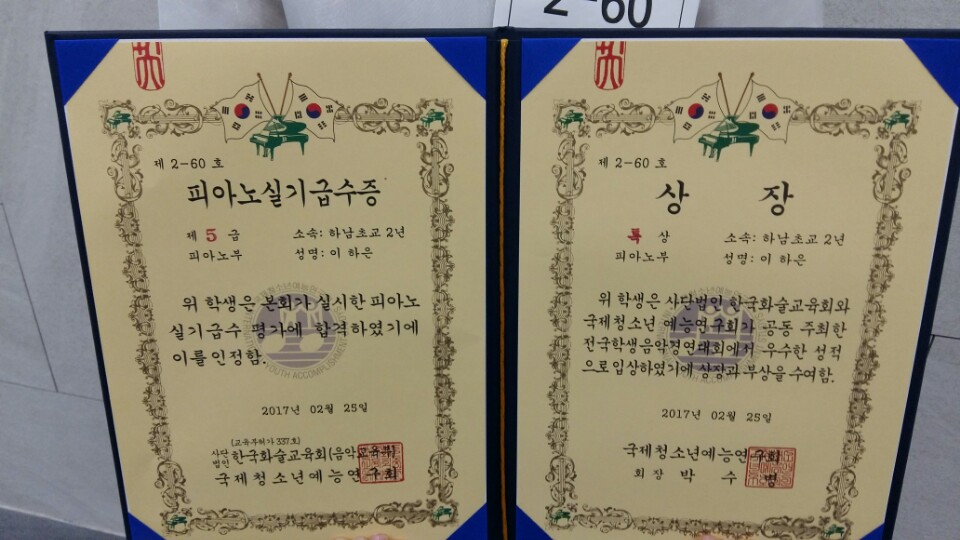 2-60
제 2-60 호
피아노실기급수증
제 5 급 소속: 하남초교 2년
피아노부 성명: 이 하은
위 학생은 본회가 실시한 피아노
실기급수 평가에 합격하였기에
이를 인정함.
2017년 02월 25일
(교육부허가 337호)
사단법인 한국화술교육회(음악교육부)
국제청소년예능연구회
제 2-60 호
상 장
특 상 소속: 하남초교 2년
피아노부 성명: 이 하은
위 학생은 사단법인 한국화술교육회와
국제청소년 예능연구회가 공동 주최한
전국학생음악경연대회에서 우수한 성적
으로입상하였기에 상장과 부상을수여함.
2017년 02월 25일
국제청소년예능연구회
회장 박 수 병